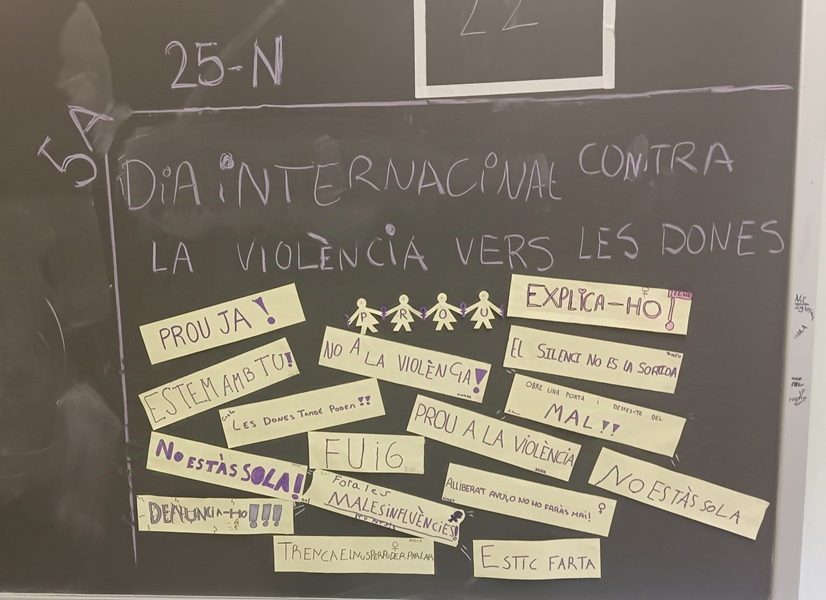 22
25-N
5A
DIA INTERNACINAL CONTRA
LA VIOLÈNCIA VERS LES DONES
PROU JA!
PROU
EXPLICA-HO!
NO A LA VIOLÈNCIA!
EL SILENCI NO ES LA SORTIDA
ESTEM AMB TU!
LES DONES TAMBÉ PODEN!!
OBRE UNA PORTA I DESFES-TE DEL
MAL!!
PROU A LA VIOLÈNCIA
NO ESTÀS SOLA!
FUIG
NO ESTÀS SOLA
Fora les
MALES INFLUÈNCIES!
ALLIBERA'T AVUI, O NO HO FARÀS MAI!
DENUNCIA-HO!!!
TRENCA EL MUS PER PODER PARLAR
ESTIC FARTA